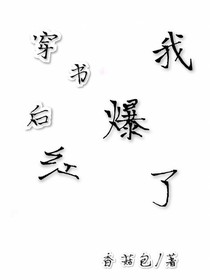 穿书后
我爆红了
香菇包/著